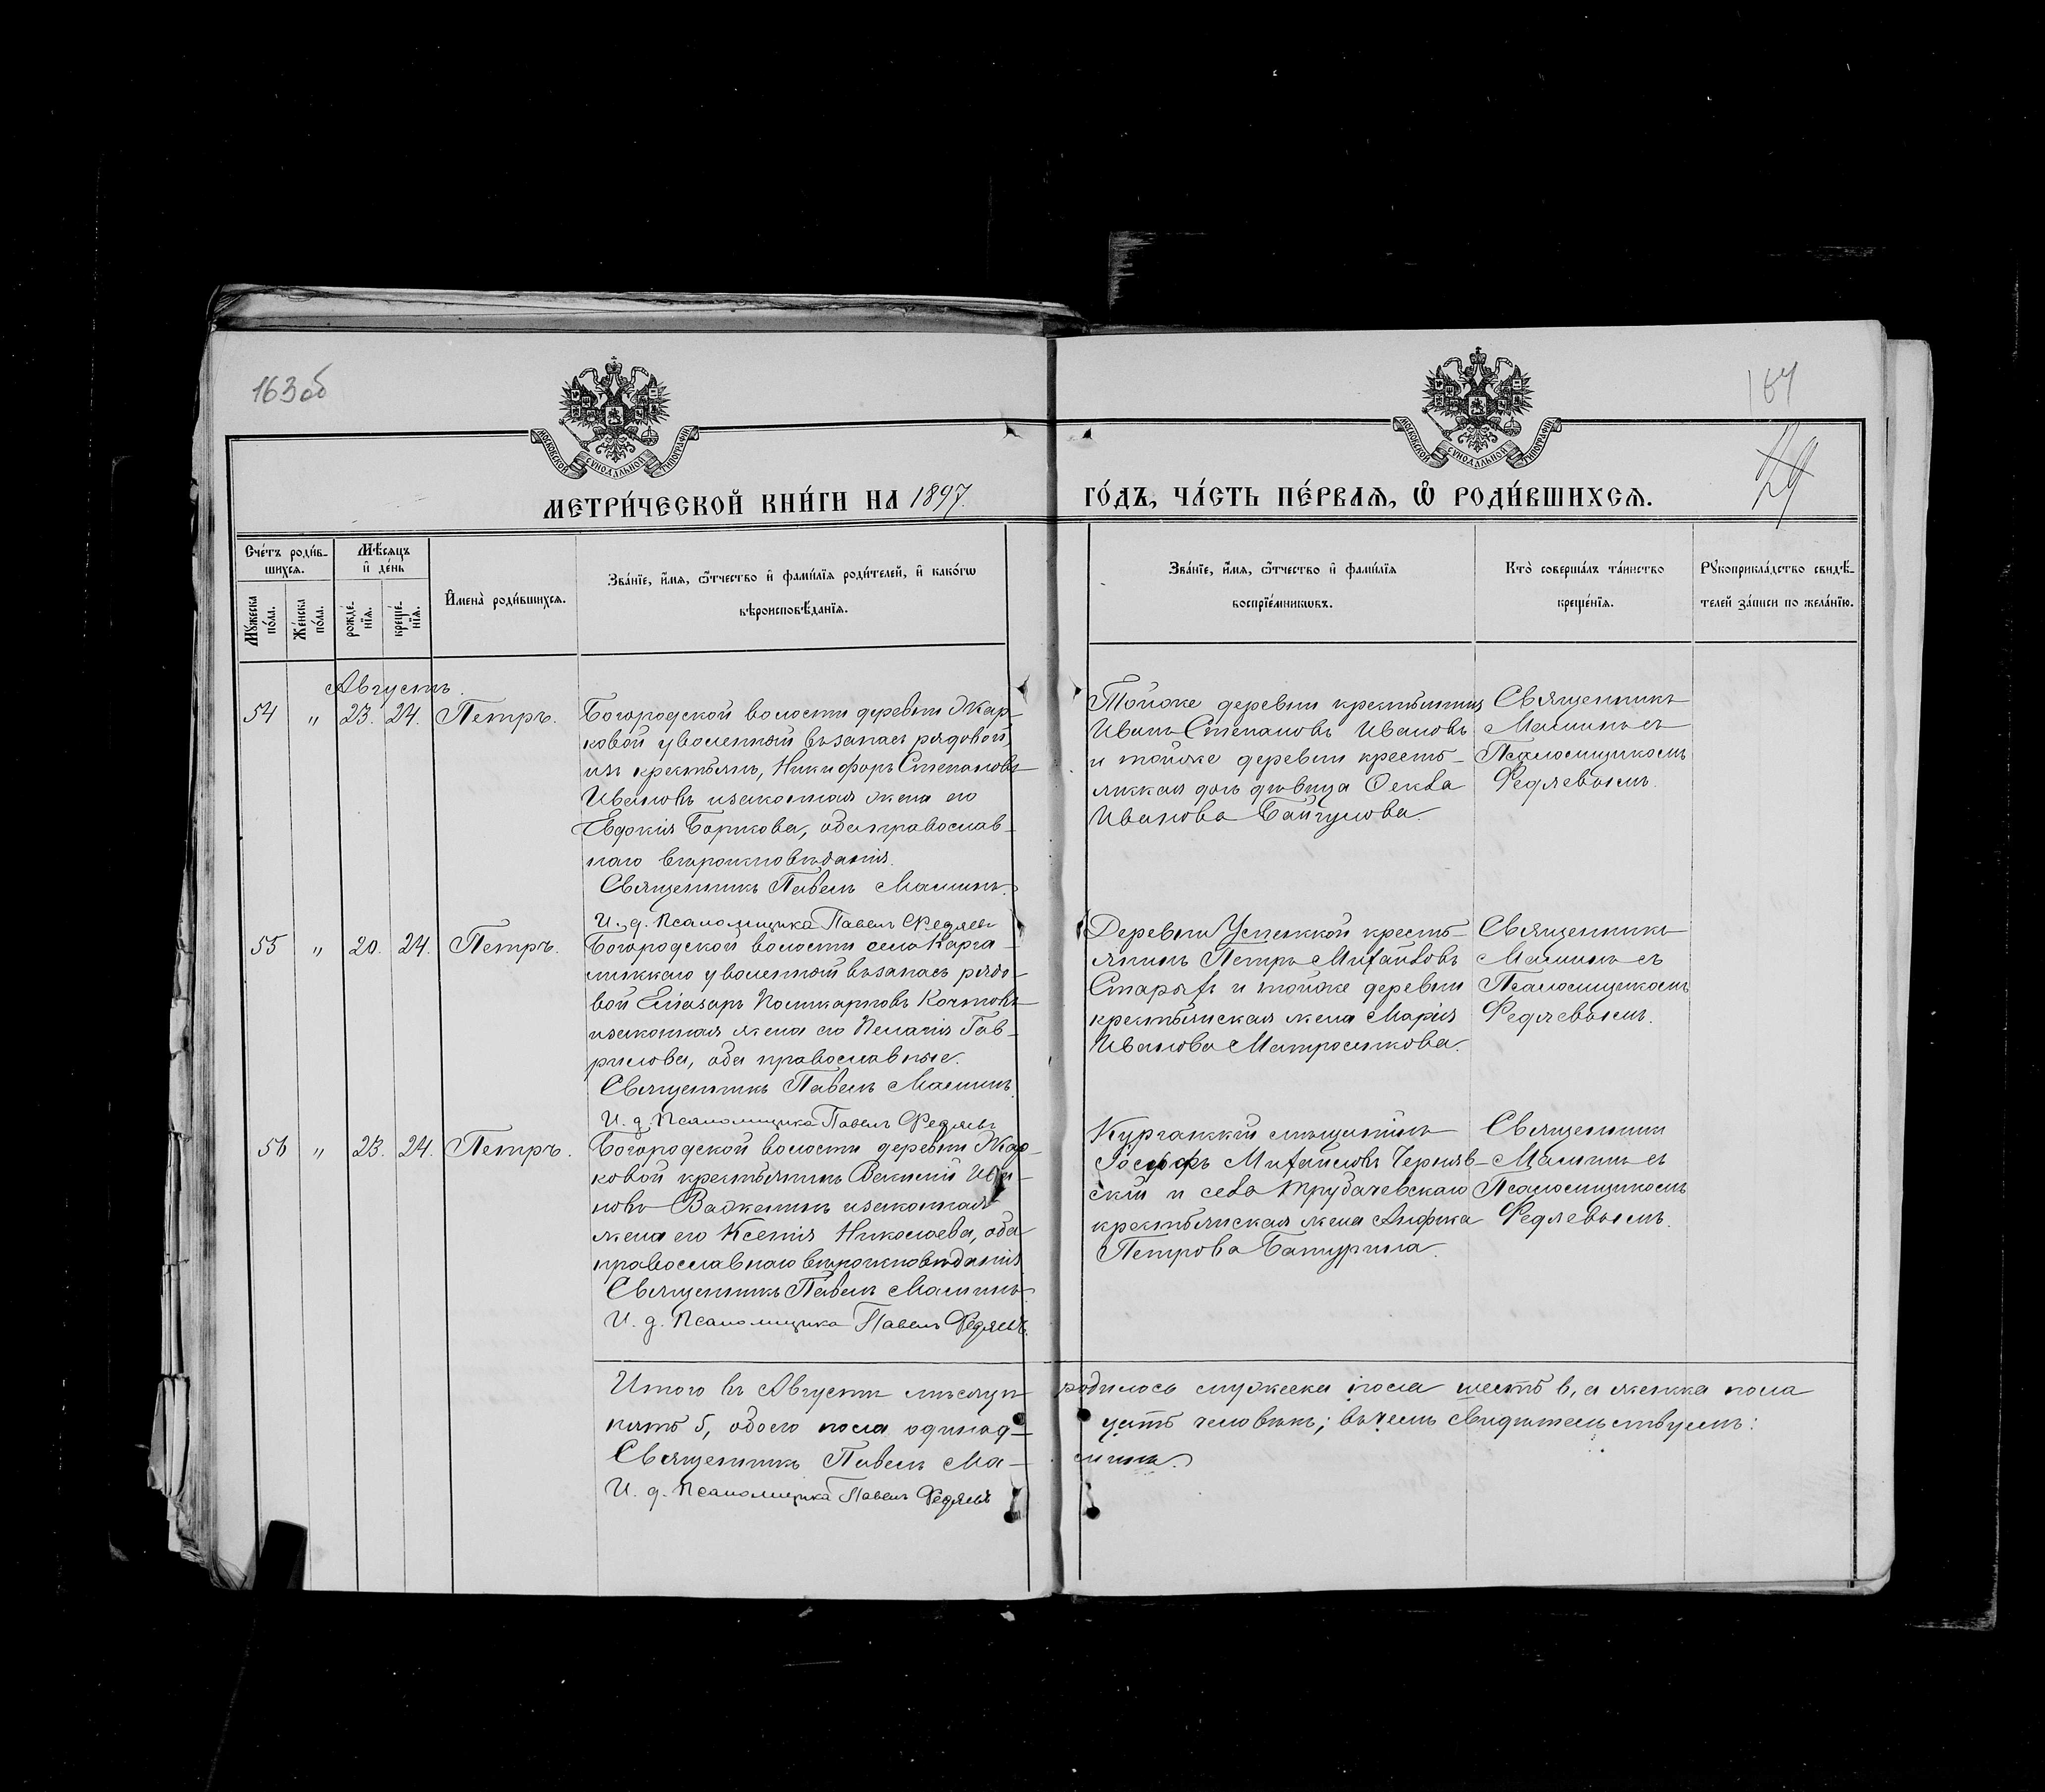 163 об
164
МОСКОВСКОЙ СѴНОДАЛЬНОЙ ТИПОГРАФІИ
МОСКОВСКОЙ СѴНОДАЛЬНОЙ ТИПОГРАФІИ
МЕТРИ́ЧЕСКОЙ КНИ́ГИ НА 1897 ГО́ДЪ, ЧА́СТЬ ПЕ́РВАЯ, Ѡ РОДИ́ВШИХСЯ.
Счетъ роди́вшихся.
Мѣсяцъ и де́нь
Мужеска по́ла.
Же́нска по́ла.
рожде́нія.
креще́нія.
Имена̀ роди́вшихся.
Зва́ніе, и́мя, ѻ́тчество и фами́лія роди́телей, и како́гѡ
вѣроисповѣ́данія.
Зва́ніе, и́мя, ѻ́тчество и фами́лія
воспріе́мникѡвъ.
Кто̀ соверша́лъ та́инство
креще́нія.
Рꙋкоприкла́дство свидѣ́-
телей за́писи по жела́нію.
Августъ.
54 " 23. 24. Петръ.
Богородской волости деревни Жар-
ковой уволенный въ запасъ рядовой,
изъ крестьянъ, Никифоръ Степановъ
Ивановъ и законная жена его
Евдокія Борисова, оба православ-
наго вѣроисповѣданія.
Священникъ Павелъ Маминъ.
И. д. Псаломщика Павелъ Федяевъ
Тойже деревни крестьянинъ
Иванъ Степановъ Ивановъ
и тойже деревни кресть-
янская дочь дѣвица Ѳекла
Иванова Байгулова.
Священникъ
Маминъ съ
Псаломщикомъ
Федяевымъ.
55 " 20. 24. Петръ.
Богородской волости села Карга-
линскаго уволенный въ запасъ рядо-
вой Елiазаръ
и законная жена его Пелагія Гав-
рилова, оба православные.
Священникъ Павелъ Маминъ.
И. д. Псаломщика Павелъ Федяевъ
Деревни Успенской кресть-
янинъ Петръ Михайловъ
Старыхъ и тойже деревни
крестьянская жена Марія
Иванова Матросенкова.
Священникъ
Маминъ съ
Псаломщикомъ
Федяевымъ.
56 " 23. 24. Петръ.
Богородской волости деревни Жар-
ковой крестьянинъ Василій Ива-
новъ Важенинъ и законная
жена его Ксенія Николаева, оба
православнаго вѣроисповѣданія
Священникъ Павелъ Маминъ
И. д. Псаломщика Павелъ Федяевъ.
Курганскій мѣщанинъ
Іосифъ Михайловъ Черняв-
скій и села Трубачевскаго
крестьянская жена Анфиса
Петрова Батурина.
Священникъ
Маминъ съ
Псаломщикомъ
Федяевымъ.
Итого въ Августѣ мѣсяцѣ родилось мужеска пола шесть 6, а женска пола
пять 5, обоего пола одинад- цать человѣкъ; въ чемъ свидѣтельствуемъ:
Священникъ Павелъ Ма- минъ.
И. д. Псаломщика Павелъ Федяевъ